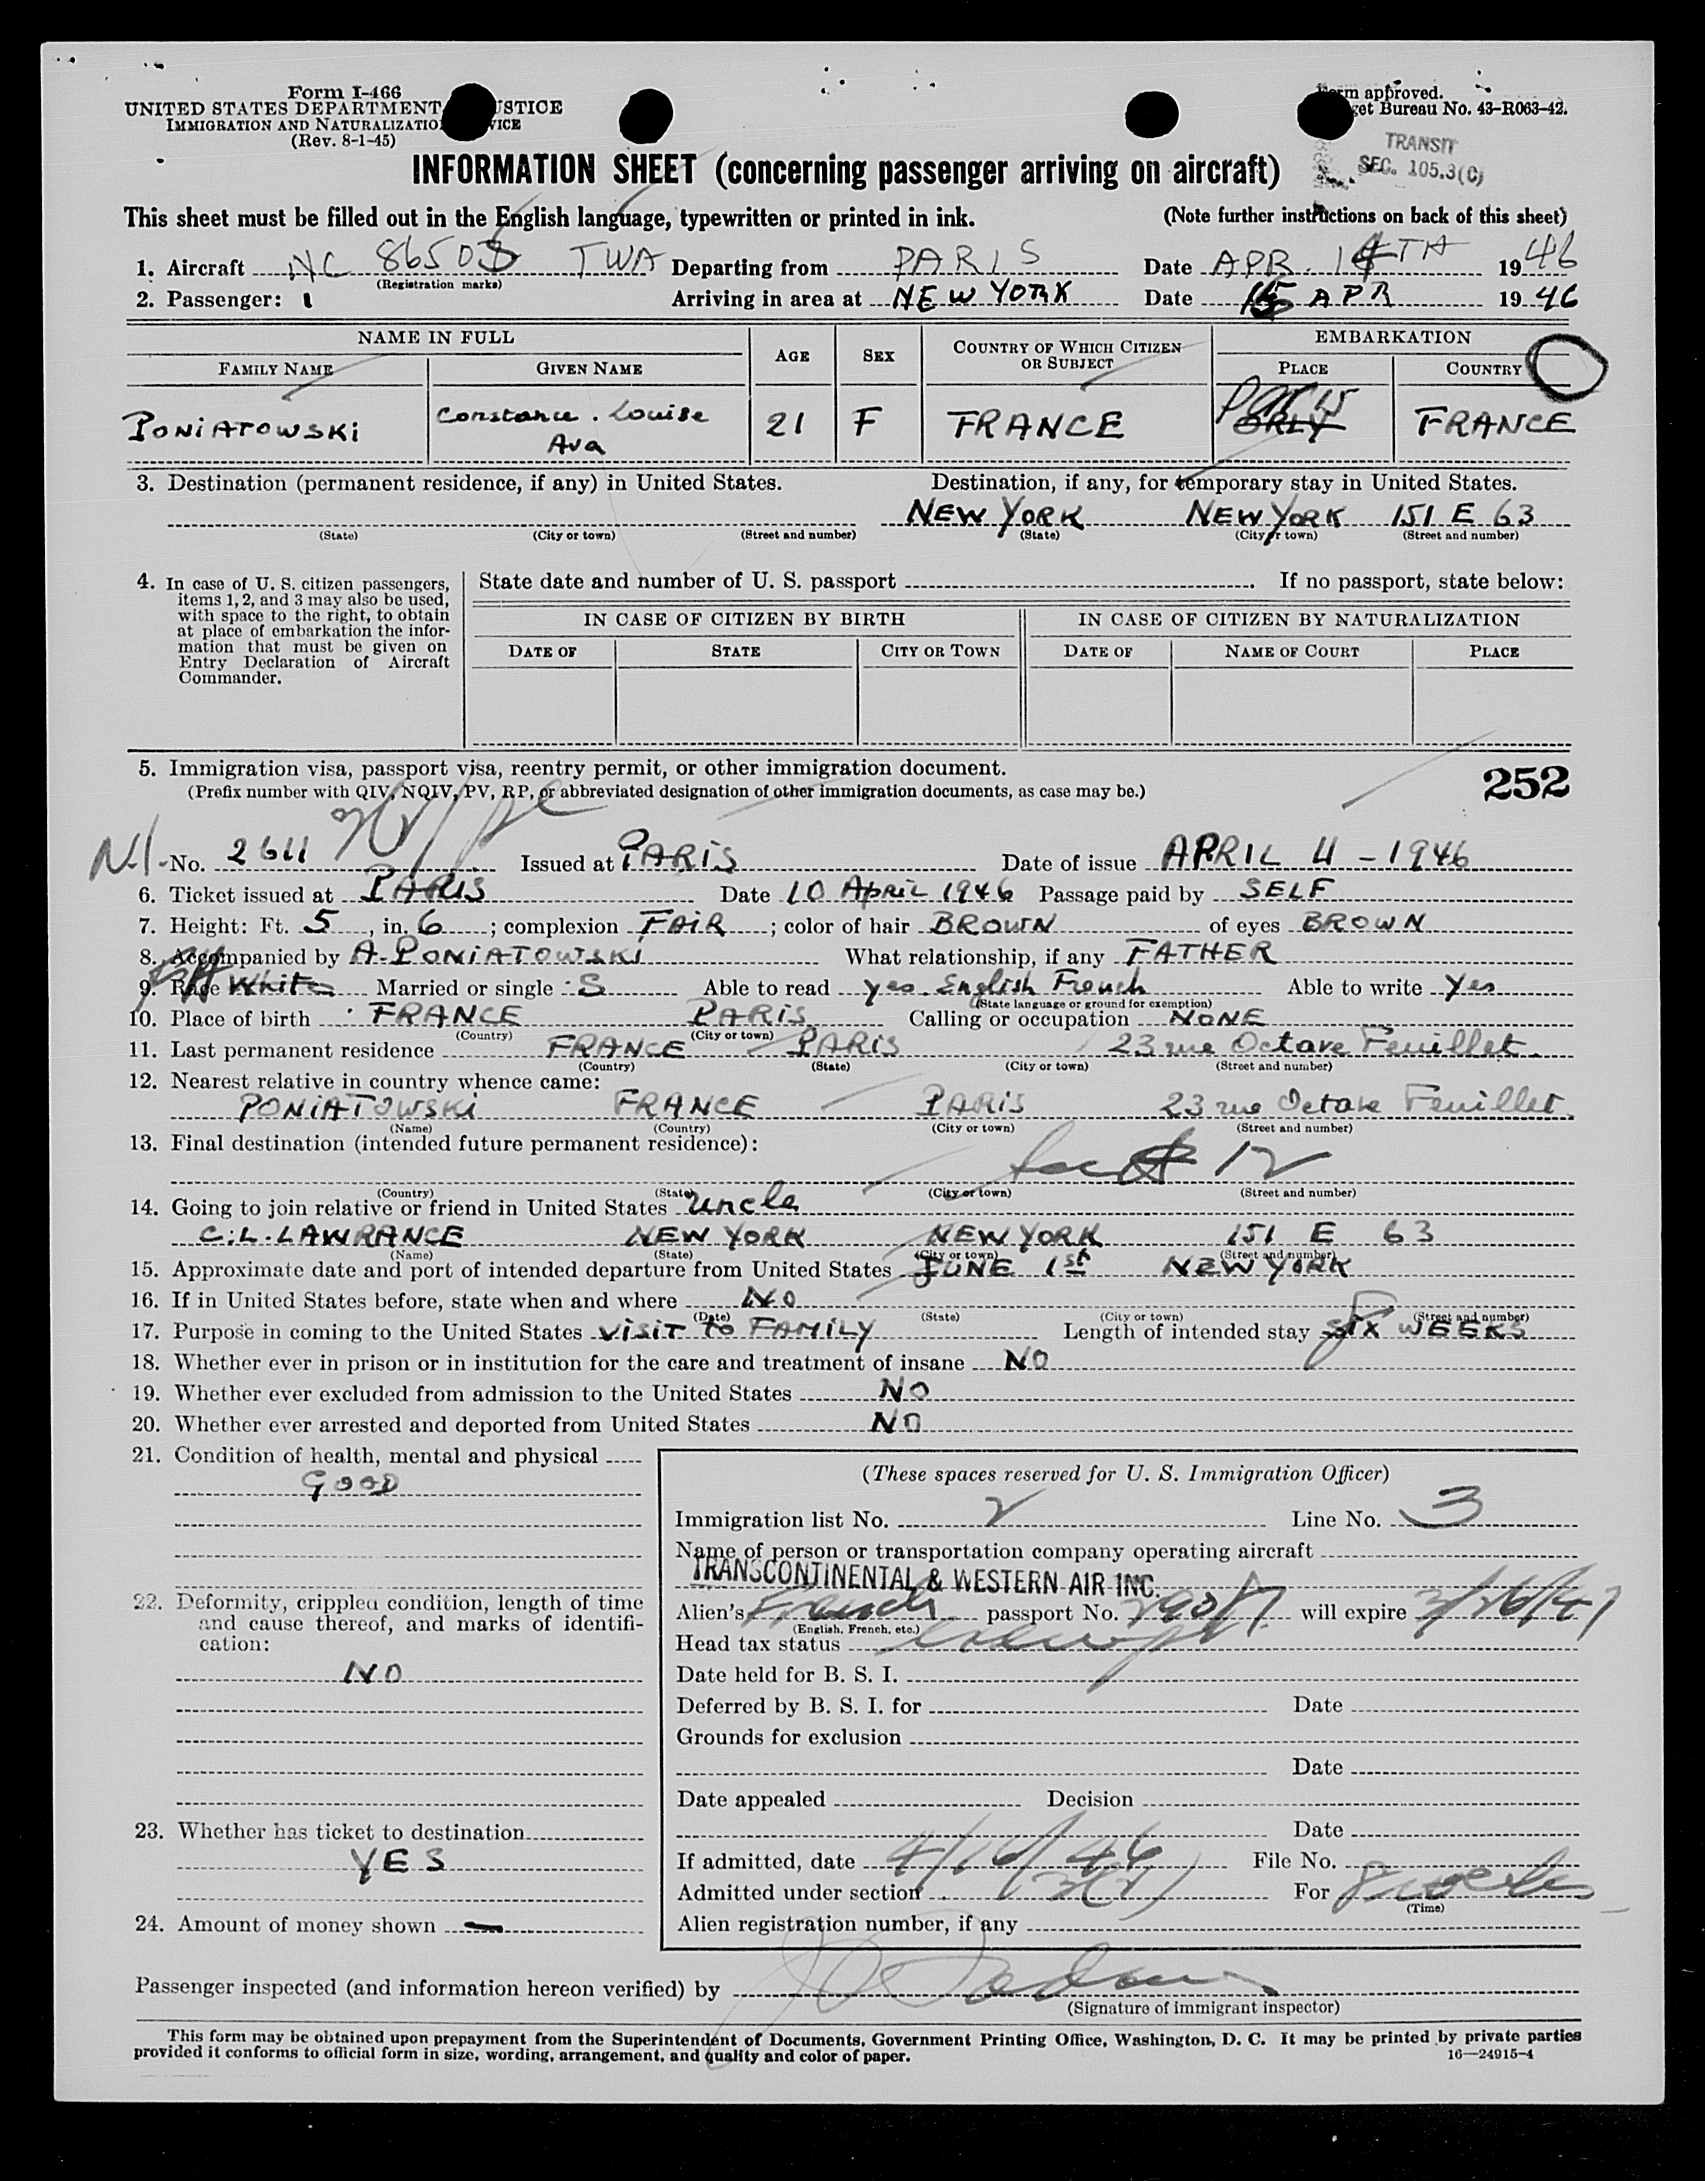 Form I-466
UNITED STATES DEPARTMENT STICE
IMMIGRATION AND NATURALIZATIO VICE
(Rev. 8-1-45)
m approved.
et Bureau No. 43-R063-42.
TRANSIT
SEC. 105.3(C)
INFORMATION SHEET (concerning passenger arriving on aircraft)
This sheet must be filled out in the English language, typewritten or printed in ink. (Note further instructions on back of this sheet)
1. Aircraft NC 86503 TWA Departing from PARIS Date APR. 14TH 1946
(Registration marks)
2. Passenger: 1 Arriving in area at NEW YORK Date 15 APR 1946
NAME IN FULL AGE SEX COUNTRY OF WHICH CITIZEN OR SUBJECT EMBARKATION
FAMILY NAME GIVEN NAME PLACE COUNTRY
PONIATOWSKI Constance. Louise Ava 21 F FRANCE Paris ORLY FRANCE
3. Destination (permanent residence, if any) in United States. Destination, if any, for temporary stay in United States.
NEW YORK NEW YORK 151 E 63
(State) (City or town) (Street and number) (State) (City or town) (Street and number)
4. In case of U. S. citizen passengers, items 1, 2, and 3 may also be used, with space to the right, to obtain at place of embarkation the information that must be given on Entry Declaration of Aircraft Commander.
State date and number of U. S. passport . If no passport, state below:
IN CASE OF CITIZEN BY BIRTH IN CASE OF CITIZEN BY NATURALIZATION
DATE OF STATE CITY OR TOWN DATE OF NAME OF COURT PLACE
5. Immigration visa, passport visa, reentry permit, or other immigration document.
(Prefix number with QIV, NQIV, PV, RP, or abbreviated designation of other immigration documents, as case may be.)
252
No. 2611 Issued at PARIS Date of issue APRIL 4 - 1946
6. Ticket issued at PARIS Date 10 APRIL 1946 Passage paid by SELF
7. Height: Ft. 5, in. 6; complexion FAIR; color of hair BROWN of eyes BROWN
8. Accompanied by A. PONIATOWSKI What relationship, if any FATHER
9. Race White Married or single S Able to read yes English French Able to write Yes
(State language or ground for exemption)
10. Place of birth FRANCE PARIS Calling or occupation NONE
(Country) (City or town)
11. Last permanent residence FRANCE PARIS 23 rue Octave Feuillet
(Country) (State) (City or town) (Street and number)
12. Nearest relative in country whence came:
PONIATOWSKI FRANCE PARIS 23 rue Octave Feuillet
(Name) (Country) (City or town) (Street and number)
13. Final destination (intended future permanent residence):
(Country) (State) (City or town) (Street and number)
14. Going to join relative or friend in United States uncle
C. L. LAWRANCE NEW YORK NEW YORK 151 E 63
(Name) (State) (City or town) (Street and number)
15. Approximate date and port of intended departure from United States JUNE 1st NEW YORK
16. If in United States before, state when and where NO
(Date) (State) (City or town) (Street and number)
17. Purpose in coming to the United States VISIT to FAMILY Length of intended stay 8 six WEEKS
18. Whether ever in prison or in institution for the care and treatment of insane NO
19. Whether ever excluded from admission to the United States NO
20. Whether ever arrested and deported from United States NO
21. Condition of health, mental and physical
GOOD
22. Deformity, crippled condition, length of time and cause thereof, and marks of identification:
NO
23. Whether has ticket to destination
YES
24. Amount of money shown —
(These spaces reserved for U. S. Immigration Officer)
Immigration list No. 2 Line No. 3
Name of person or transportation company operating aircraft
TRANSCONTINENTAL & WESTERN AIR INC.
Alien's French passport No. will expire 3/26/47
(English, French, etc.)
Head tax status
Date held for B. S. I.
Deferred by B. S. I. for Date
Grounds for exclusion
Date
Date appealed Decision
Date
If admitted, date 4/16/46 File No.
Admitted under section 3(2) For 8 weeks
(Time)
Alien registration number, if any
Passenger inspected (and information hereon verified) by
(Signature of immigrant inspector)
This form may be obtained upon prepayment from the Superintendent of Documents, Government Printing Office, Washington, D. C. It may be printed by private parties
provided it conforms to official form in size, wording, arrangement, and quality and color of paper. 16—24915-4